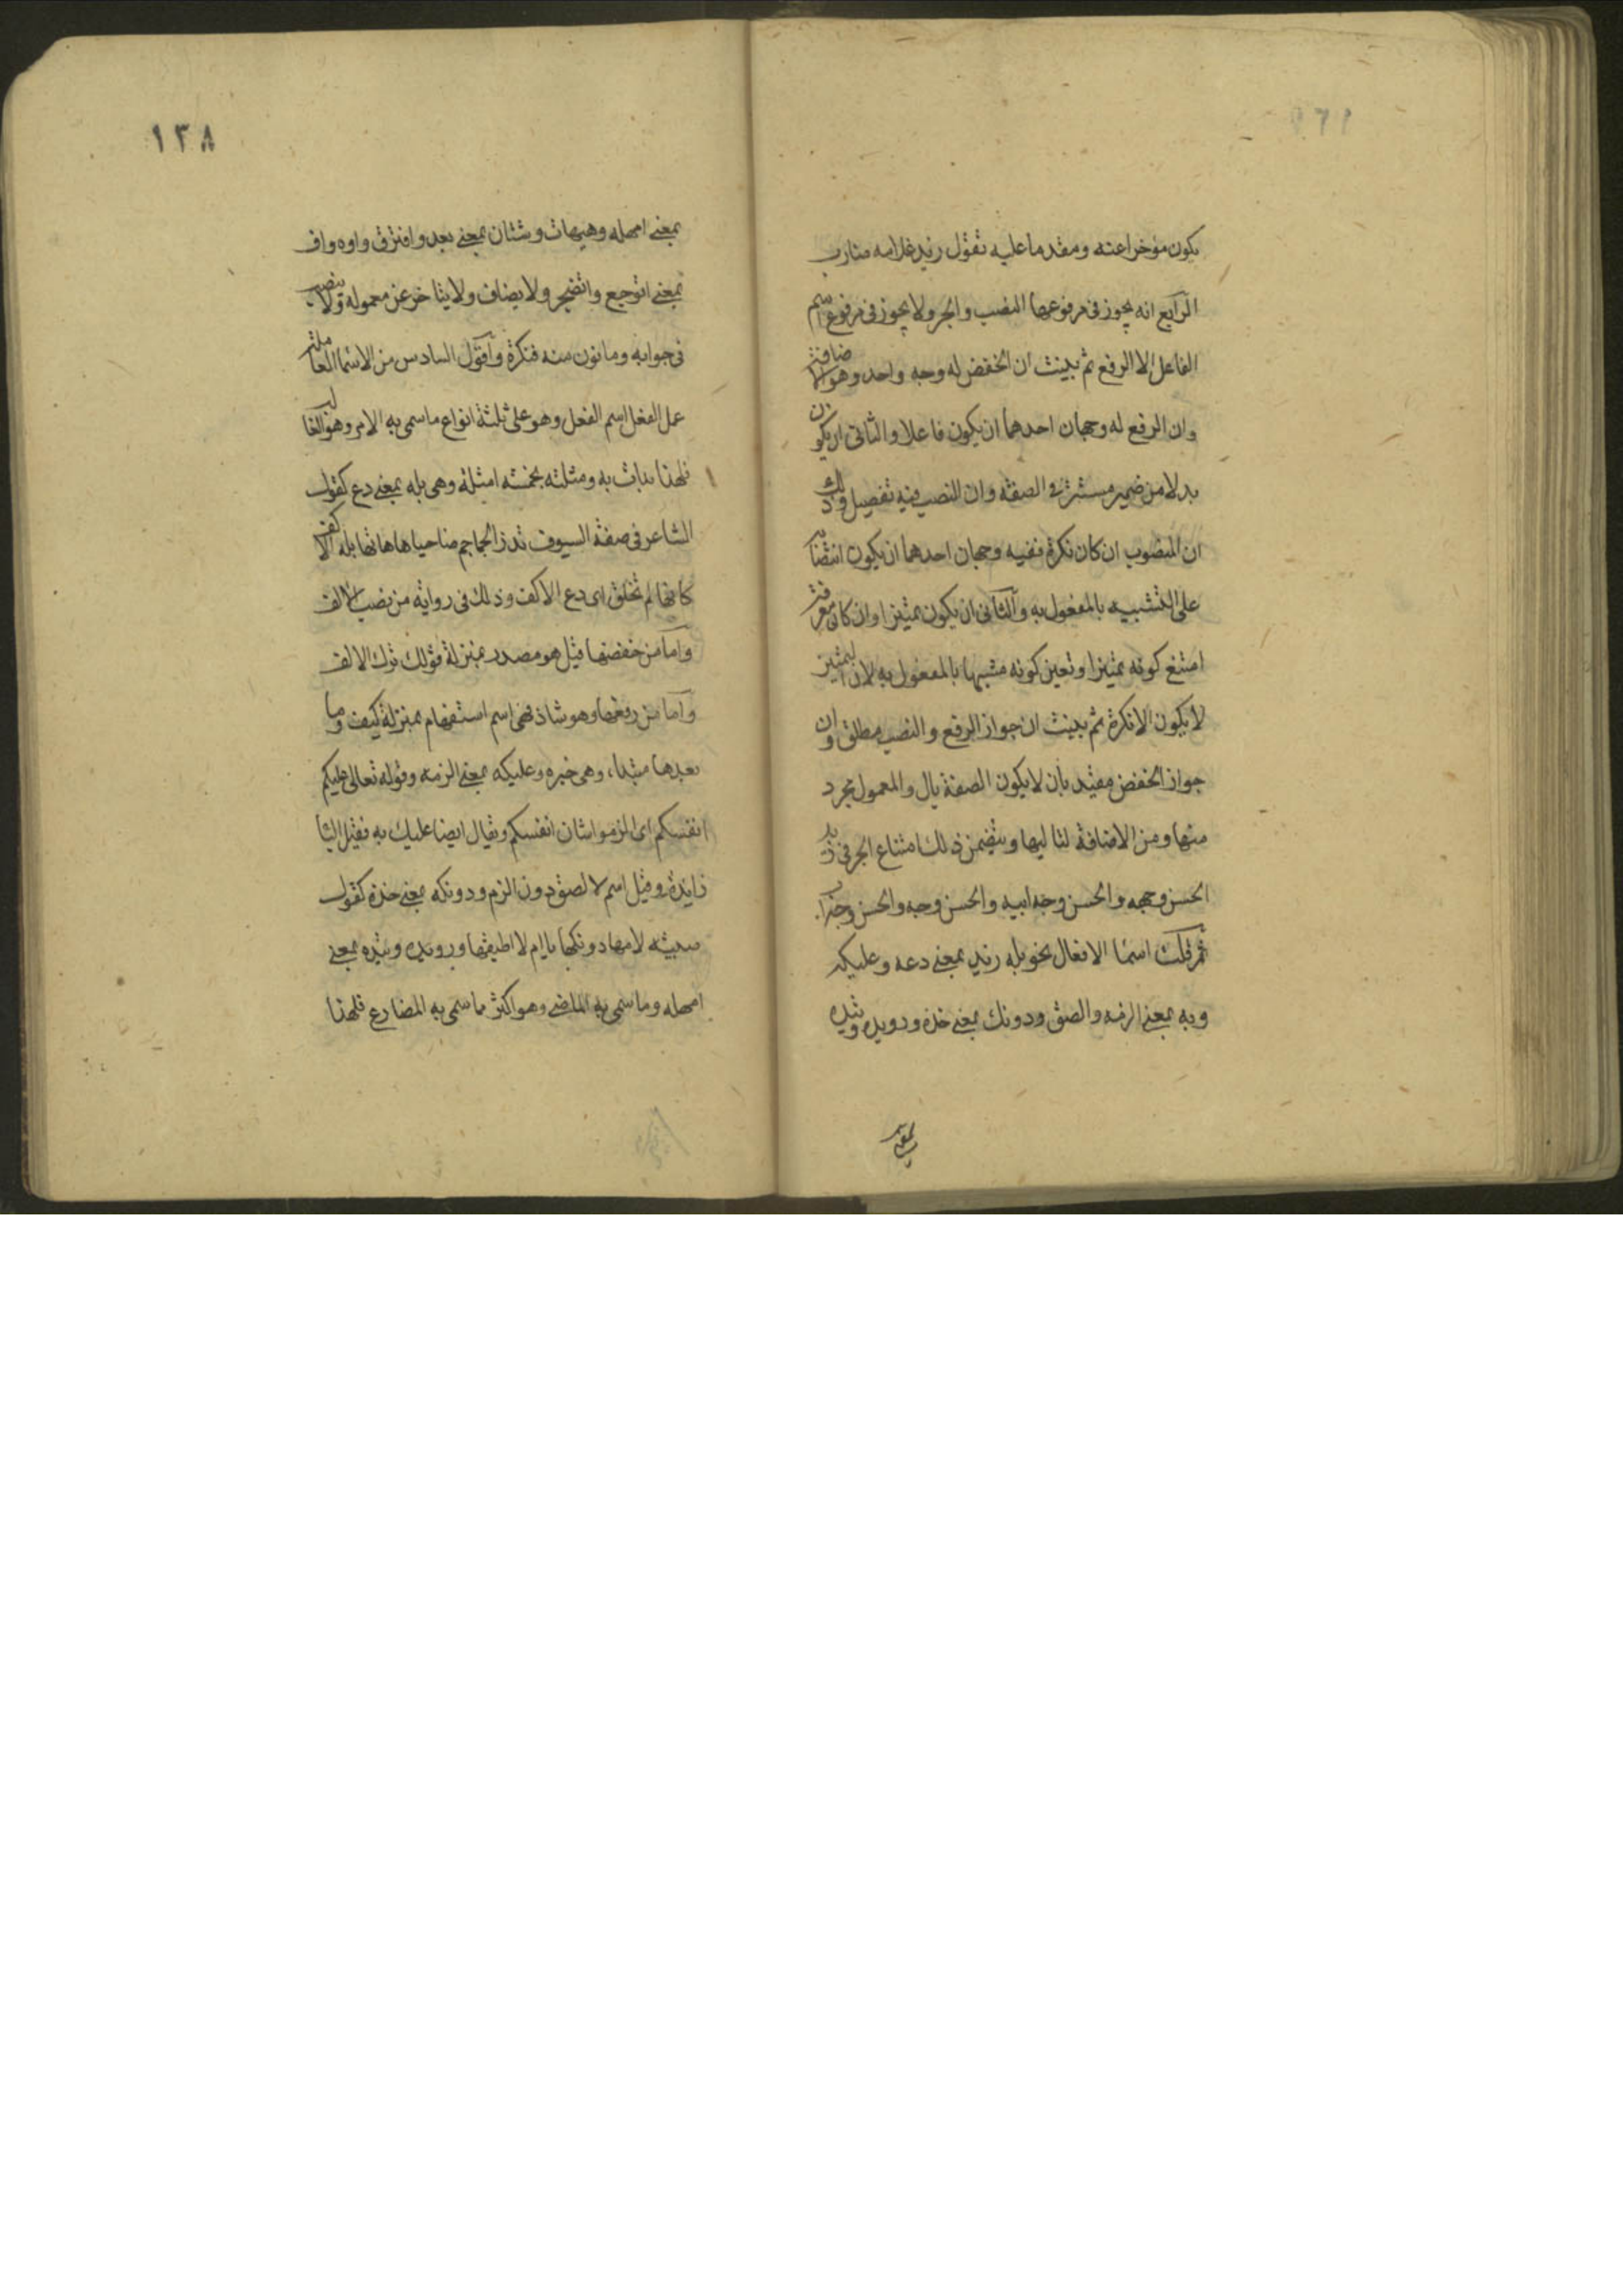 يكون مؤخرا عنه ومقدما عليه تقول زيد غلامه ضارب
الرابع انه يجوز في مرفوعها النصب والجر ولا يجوز في مرفوع اسم
الفاعل الا الرفع ثم بينت ان الخفض له وجه واحد وهو الاضافة
وان الرفع له وجهان احدهما ان يكون فاعلا والثاني ان يكون
بدلا من ضمير مستتر في الصفة وان النصب فيه تفصيل وذلك
ان المنصوب ان كان نكرة ففيه وجهان احدهما ان يكون انتصابه
على التشبيه بالمفعول به والثاني ان يكون تمييزا وان كان معرفة
امتنع كونه تمييزا وتعين كونه مشبها بالمفعول به لان التمييز
لا يكون الا نكرة ثم بينت ان جواز الرفع والنصب مطلق وان
جواز الخفض مقيد بان لا يكون الصفة بال والمعمول مجرد
منها ومن الاضافة لتاليها ويتضمن ذلك امتناع الجر في زيد
الحسن وجهه والحسن وجه ابيه والحسن وجه والحسن وجه اب
ثم قلت اسما الافعال نحو بله زيد بمعنى دعه وعليكه
وبه بمعنى الزمه والصق ودونك بمعنى خذه ورويده وتيده
بمعنى
١٣٨
بمعنى امهله وهيهات وشتان بمعنى بعد وافترق واوه واف
بمعنى اتوجع واتضجر ولا يضاف ولا يتاخر عن معموله ولا ينصب
في جوابه وما نون منه فنكرة واقول السادس من الاسما العاملة
عمل الفعل اسم الفعل وهو على ثلثة انواع ما سمى به الامر وهو الغالب
فلهذا بدات به ومثلته بخمسة امثلة وهي بله بمعنى دع كقول
الشاعر في صفة السيوف تذر الجماجم ضاحيا هاماتها بله الاكف
كانها لم تخلق اى دع الاكف وذلك في رواية من نصب الاكف
واما من خفضها فقيل هو مصدر بمنزلة قولك ترك الاكف
واما من رفعها وهو شاذ فهي اسم استفهام بمنزلة كيف وما
بعدها مبتداء وهي خبره وعليكه بمعنى الزمه وقوله تعالى عليكم
انفسكم اى الزموا شان انفسكم ويقال ايضا عليك به فقيل البا
زايدة وقيل اسم لالصق دون الزم ودونكه بمعنى خذه كقول
صبية لامها دونكها يا ام لا اطيقها ورويده وتيده بمعنى
امهله وما سمى به الماضي وهو اكثر مما سمى به المضارع فلهذا